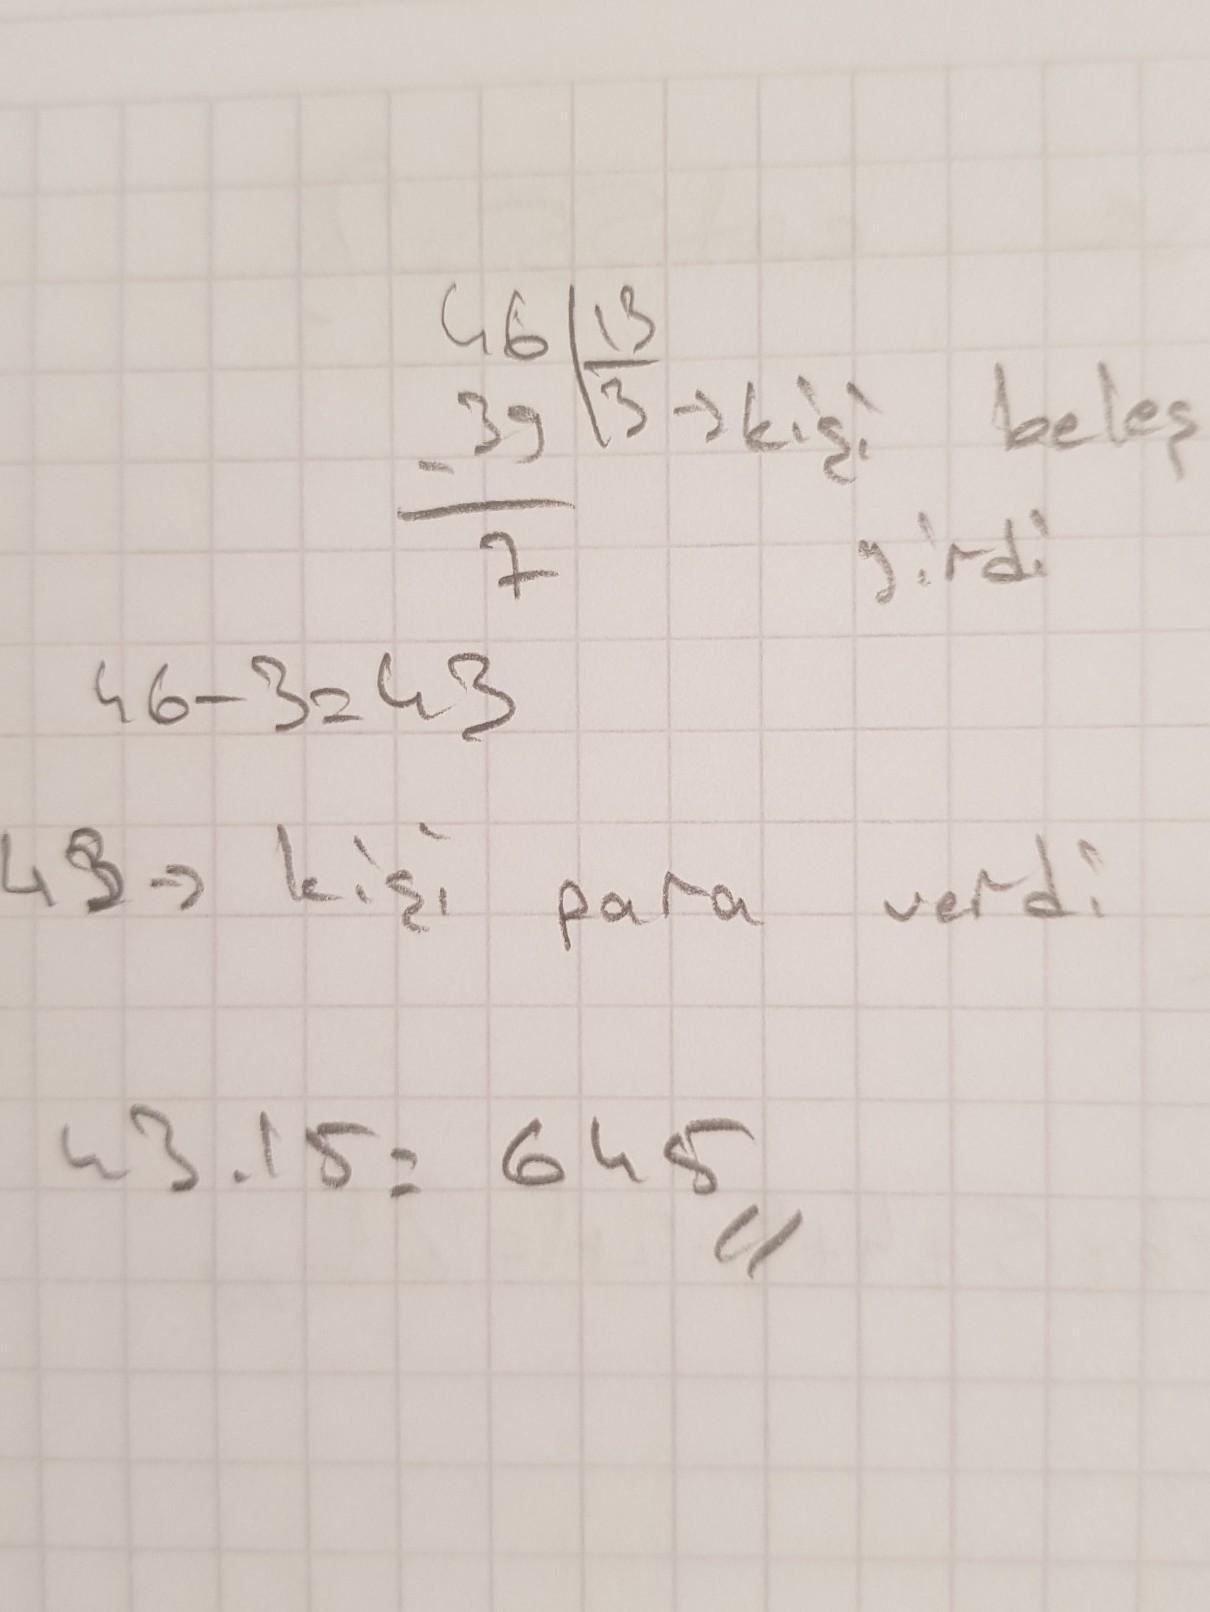 46 | 13
- 39 | 3 → kişi beleş
7 girdi
46-3=43
43 → kişi para verdi
43.15= 645 //